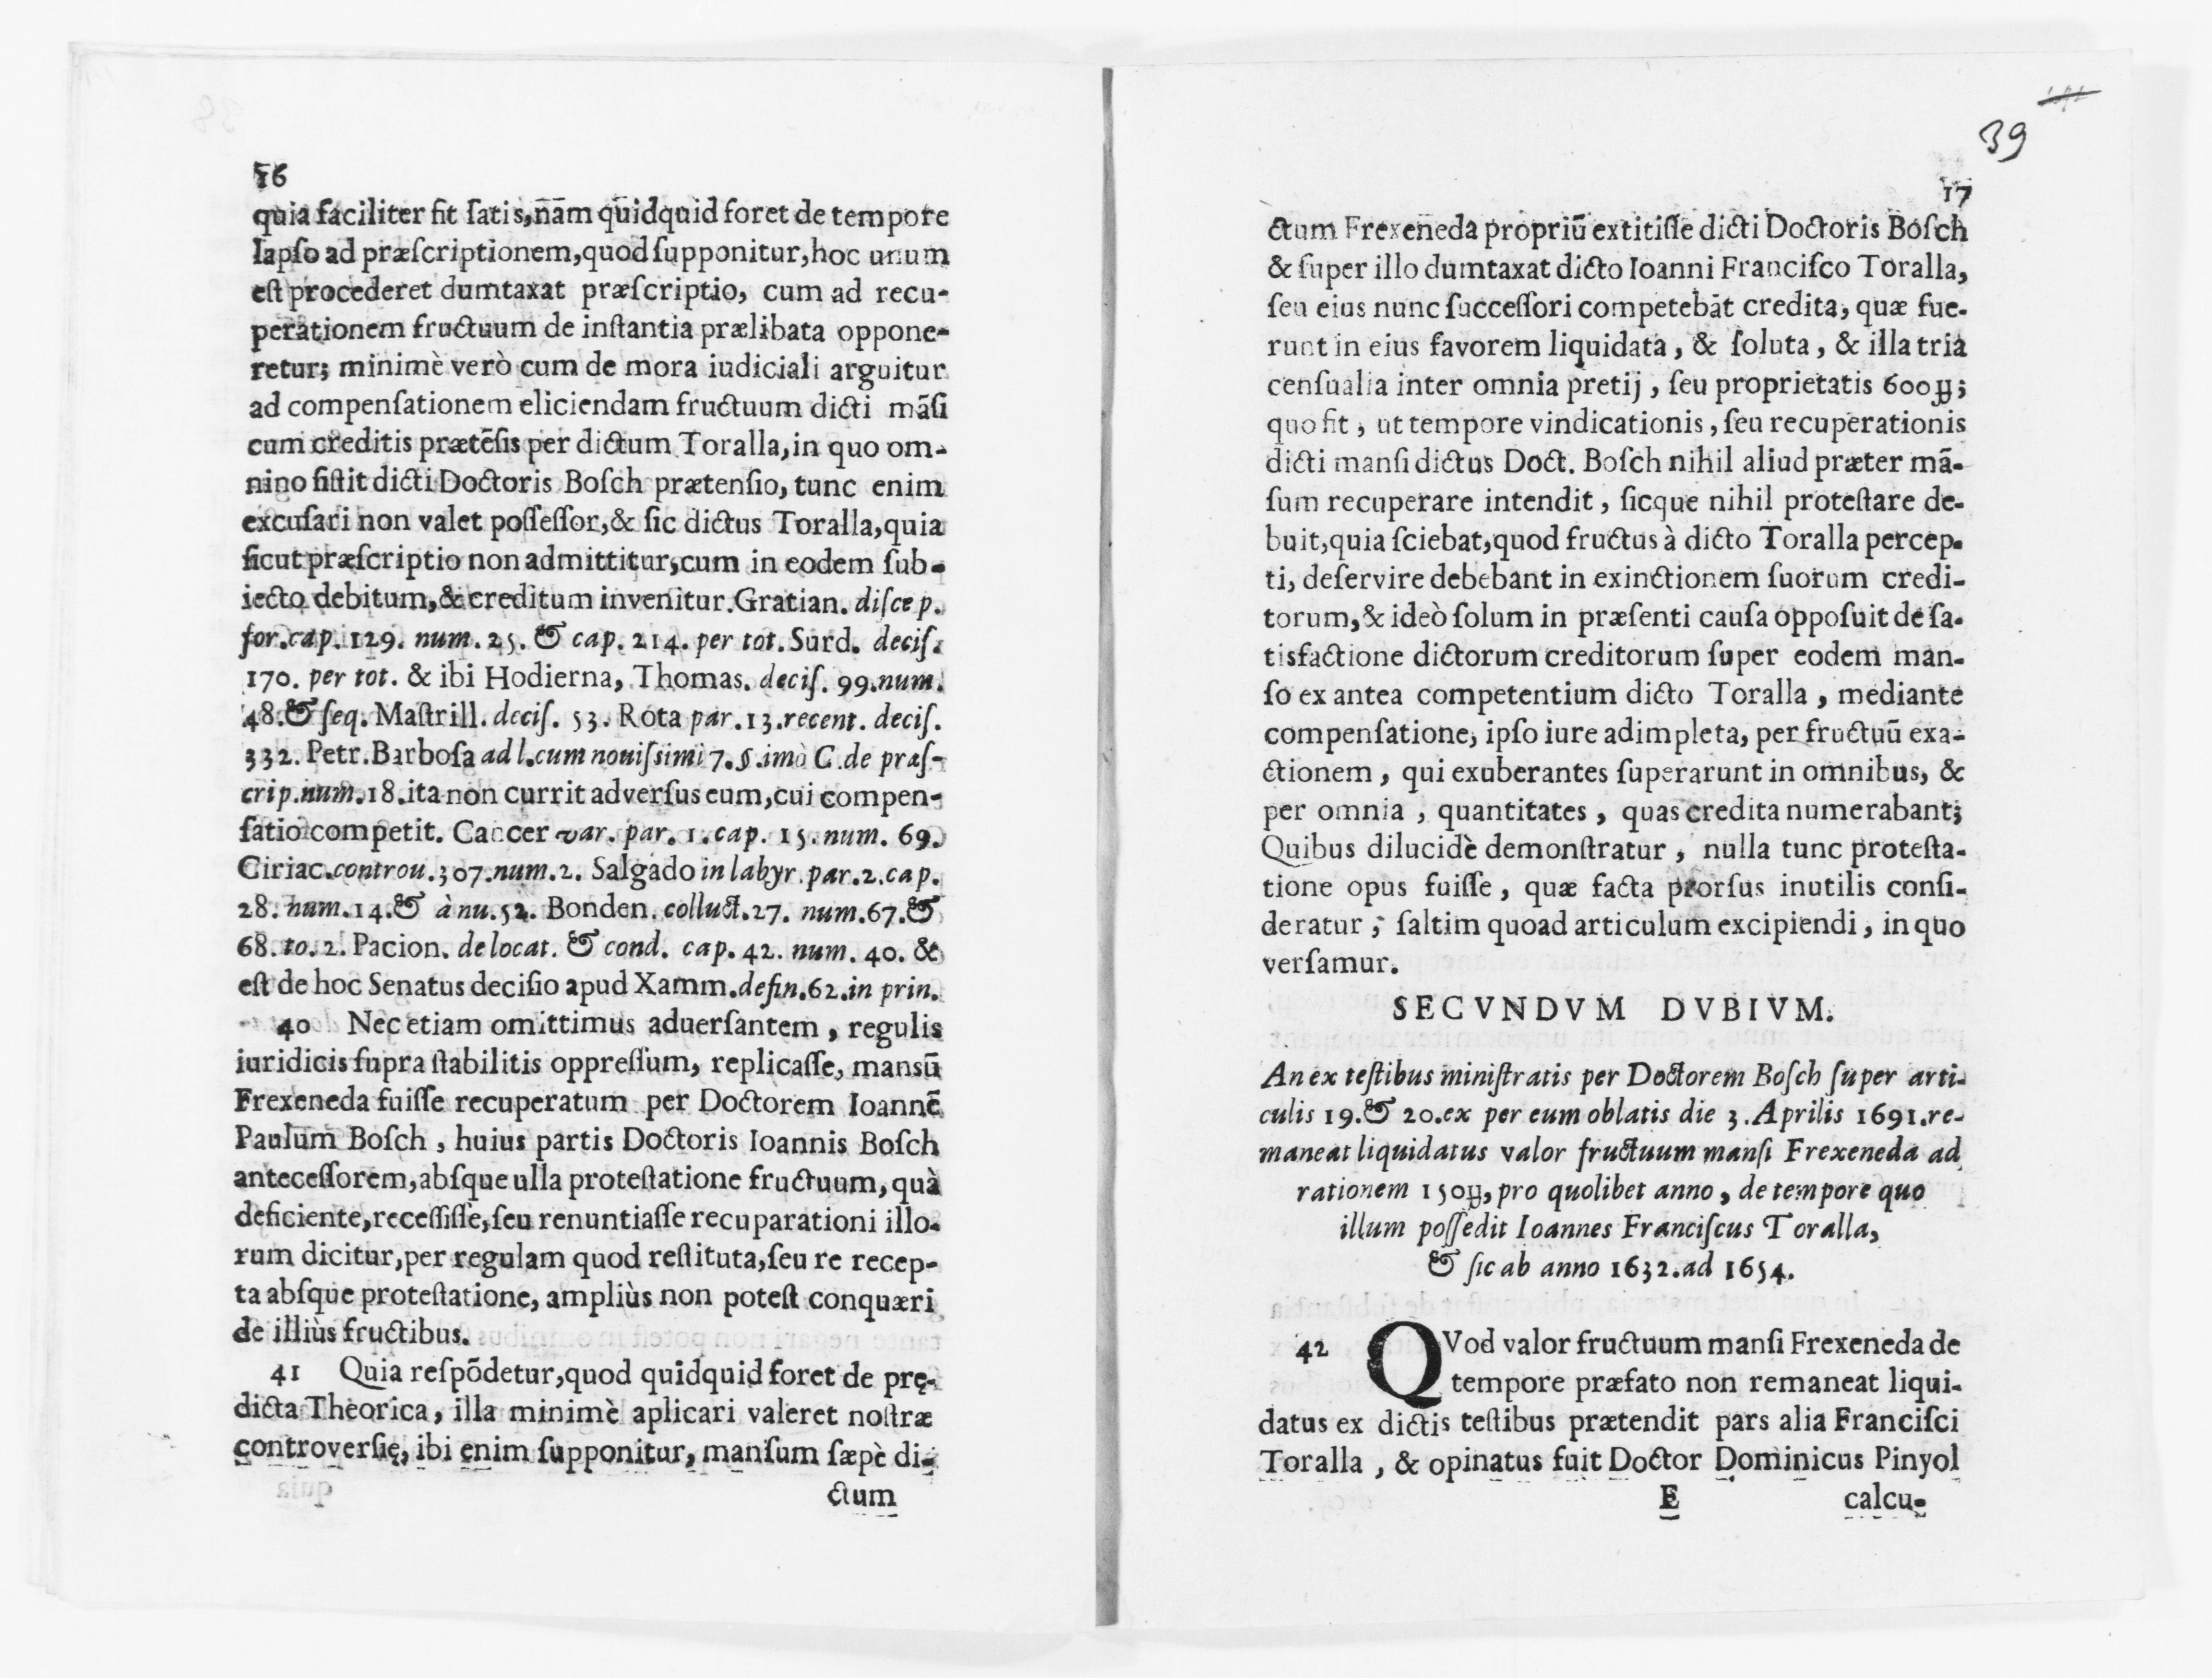 16
quia faciliter fit ſatis, nãm quidquid foret de tempore
lapſo ad præſcriptionem, quod ſupponitur, hoc unum
eſt procederet dumtaxat præſcriptio, cum ad recu-
perationem fructuum de inſtantia prælibata oppone-
retur; minimè verò cum de mora iudiciali arguitur
ad compenſationem eliciendam fructuum dicti mãſi
cum creditis prætẽſis per dictum Toralla, in quo om-
nino ſiſtit dicti Doctoris Boſch prætenſio, tunc enim
excuſari non valet poſſeſſor, & ſic dictus Toralla, quia
ſicut præſcriptio non admittitur, cum in eodem ſub-
iecto debitum, & creditum invenitur. Gratian. diſcep.
for. cap. 129. num. 25. & cap. 214. per tot. Surd. deciſ.
170. per tot. & ibi Hodierna, Thomas. deciſ. 99. num.
48. & ſeq. Maſtrill. deciſ. 53. Rota par. 13. recent. deciſ.
332. Petr. Barboſa ad l. cum nouiſsimi 7. §. imò C. de præſ-
crip. num. 18. ita non currit adverſus eum, cui compen-
ſatio competit. Cancer var. par. 1. cap. 15. num. 69.
Ciriac. controu. 307. num. 2. Salgado in labyr. par. 2. cap.
28. num. 14. & à nu. 52. Bonden. colluct. 27. num. 67. &
68. to. 2. Pacion. de locat. & cond. cap. 42. num. 40. &
eſt de hoc Senatus deciſio apud Xamm. defin. 62. in prin.
40 Nec etiam omittimus aduerſantem, regulis
iuridicis ſupra ſtabilitis oppreſſum, replicaſſe, mansũ
Frexeneda fuiſſe recuperatum per Doctorem Ioannẽ
Paulum Boſch, huius partis Doctoris Ioannis Boſch
anteceſſorem, abſque ulla proteſtatione fructuum, quà
deficiente, receſſiſſe, ſeu renuntiaſſe recuparationi illo-
rum dicitur, per regulam quod reſtituta, ſeu re recep-
ta abſque proteſtatione, ampliùs non poteſt conquæri
de illiùs fructibus.
41 Quia reſpõdetur, quod quidquid foret de prę-
dicta Theorica, illa minimè aplicari valeret noſtræ
controverſię, ibi enim ſupponitur, manſum ſæpè di-
ctum
39
17
ctum Frexeneda propriũ extitiſſe dicti Doctoris Boſch
& ſuper illo dumtaxat dicto Ioanni Franciſco Toralla,
ſeu eius nunc ſucceſſori competebãt credita, quæ fue-
runt in eius favorem liquidata, & ſoluta, & illa tria
cenſualia inter omnia pretij, ſeu proprietatis 600 ꝧ;
quo fit, ut tempore vindicationis, ſeu recuperationis
dicti manſi dictus Doct. Boſch nihil aliud præter mã-
ſum recuperare intendit, ſicque nihil proteſtare de-
buit, quia ſciebat, quod fructus à dicto Toralla percep-
ti, deſervire debebant in exinctionem ſuorum credi-
torum, & ideò ſolum in præſenti cauſa oppoſuit de ſa-
tisfactione dictorum creditorum ſuper eodem man-
ſo ex antea competentium dicto Toralla, mediante
compenſatione, ipſo iure adimpleta, per fructuũ exa-
ctionem, qui exuberantes ſuperarunt in omnibus, &
per omnia, quantitates, quas credita numerabant;
Quibus dilucidè demonſtratur, nulla tunc proteſta-
tione opus fuiſſe, quæ facta prorſus inutilis conſi-
deratur; ſaltim quoad articulum excipiendi, in quo
verſamur.
SECVNDVM DVBIVM.
An ex teſtibus miniſtratis per Doctorem Boſch ſuper arti-
culis 19. & 20. ex per eum oblatis die 3. Aprilis 1691. re-
maneat liquidatus valor fructuum manſi Frexeneda ad
rationem 150 ꝧ, pro quolibet anno, de tempore quo
illum poſſedit Ioannes Franciſcus Toralla,
& ſic ab anno 1632. ad 1654.
42 QVod valor fructuum manſi Frexeneda de
tempore præfato non remaneat liqui-
datus ex dictis teſtibus prætendit pars alia Franciſci
Toralla, & opinatus fuit Doctor Dominicus Pinyol
E calcu-